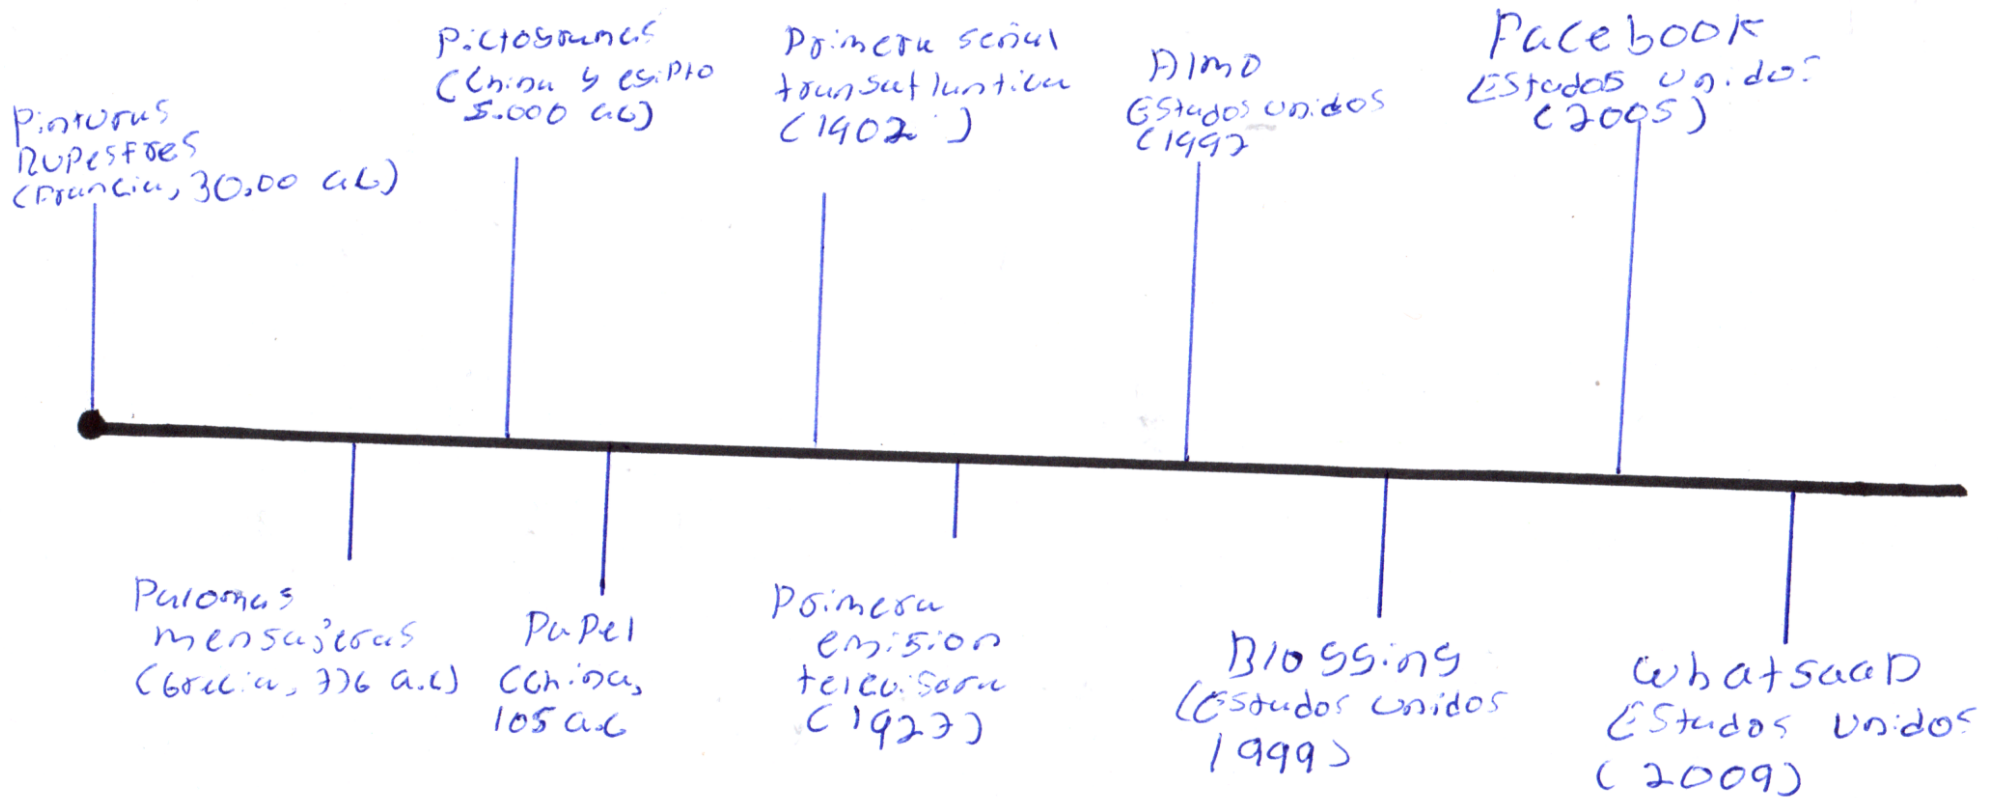 Pinturas
Rupestres
(Francia, 30,00 a.c)
Pictogramas
(China y egipto
5.000 a.c)
Primera señal
transatlantica
(1902)
AIMO
Estados unidos
(1997
Facebook
Estados unidos
(2005)
Palomas
mensajeras
(Grecia, 776 a.c)
Papel
(China,
105 a.c
Primera
emision
televisora
(1927)
Blogging
(Estados unidos
1999)
Whatsaap
Estados unidos
(2009)